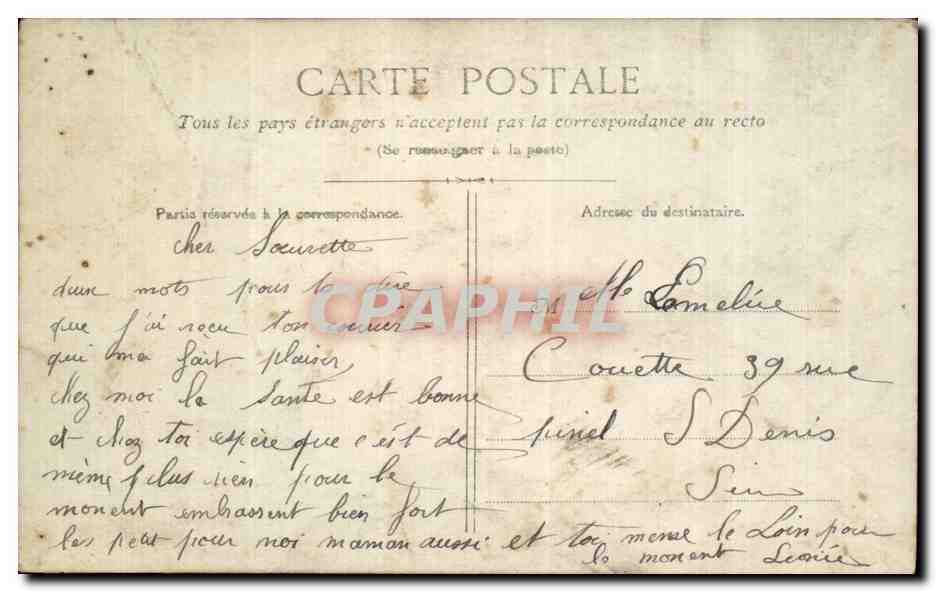 CARTE POSTALE
Tous les pays étrangers n'acceptent pas la correspondance au recto
(Se renseigner à la poste)
Partie réservée à la correspondance.
Adresse du destinataire.
cher Sœurette
deux mots pour te dire
que j'ai reçu ton
qui ma fait plaisir
chez moi la santé est bonne
et chez toi espère que c'est de
même plus rien pour le
moment embrassent bien fort
les petit pour moi maman aussi et toi meme le Loin pour
le moment Leonie
Melle
Couette 39 rue
pinel S Denis
Sein
CPAPHIL